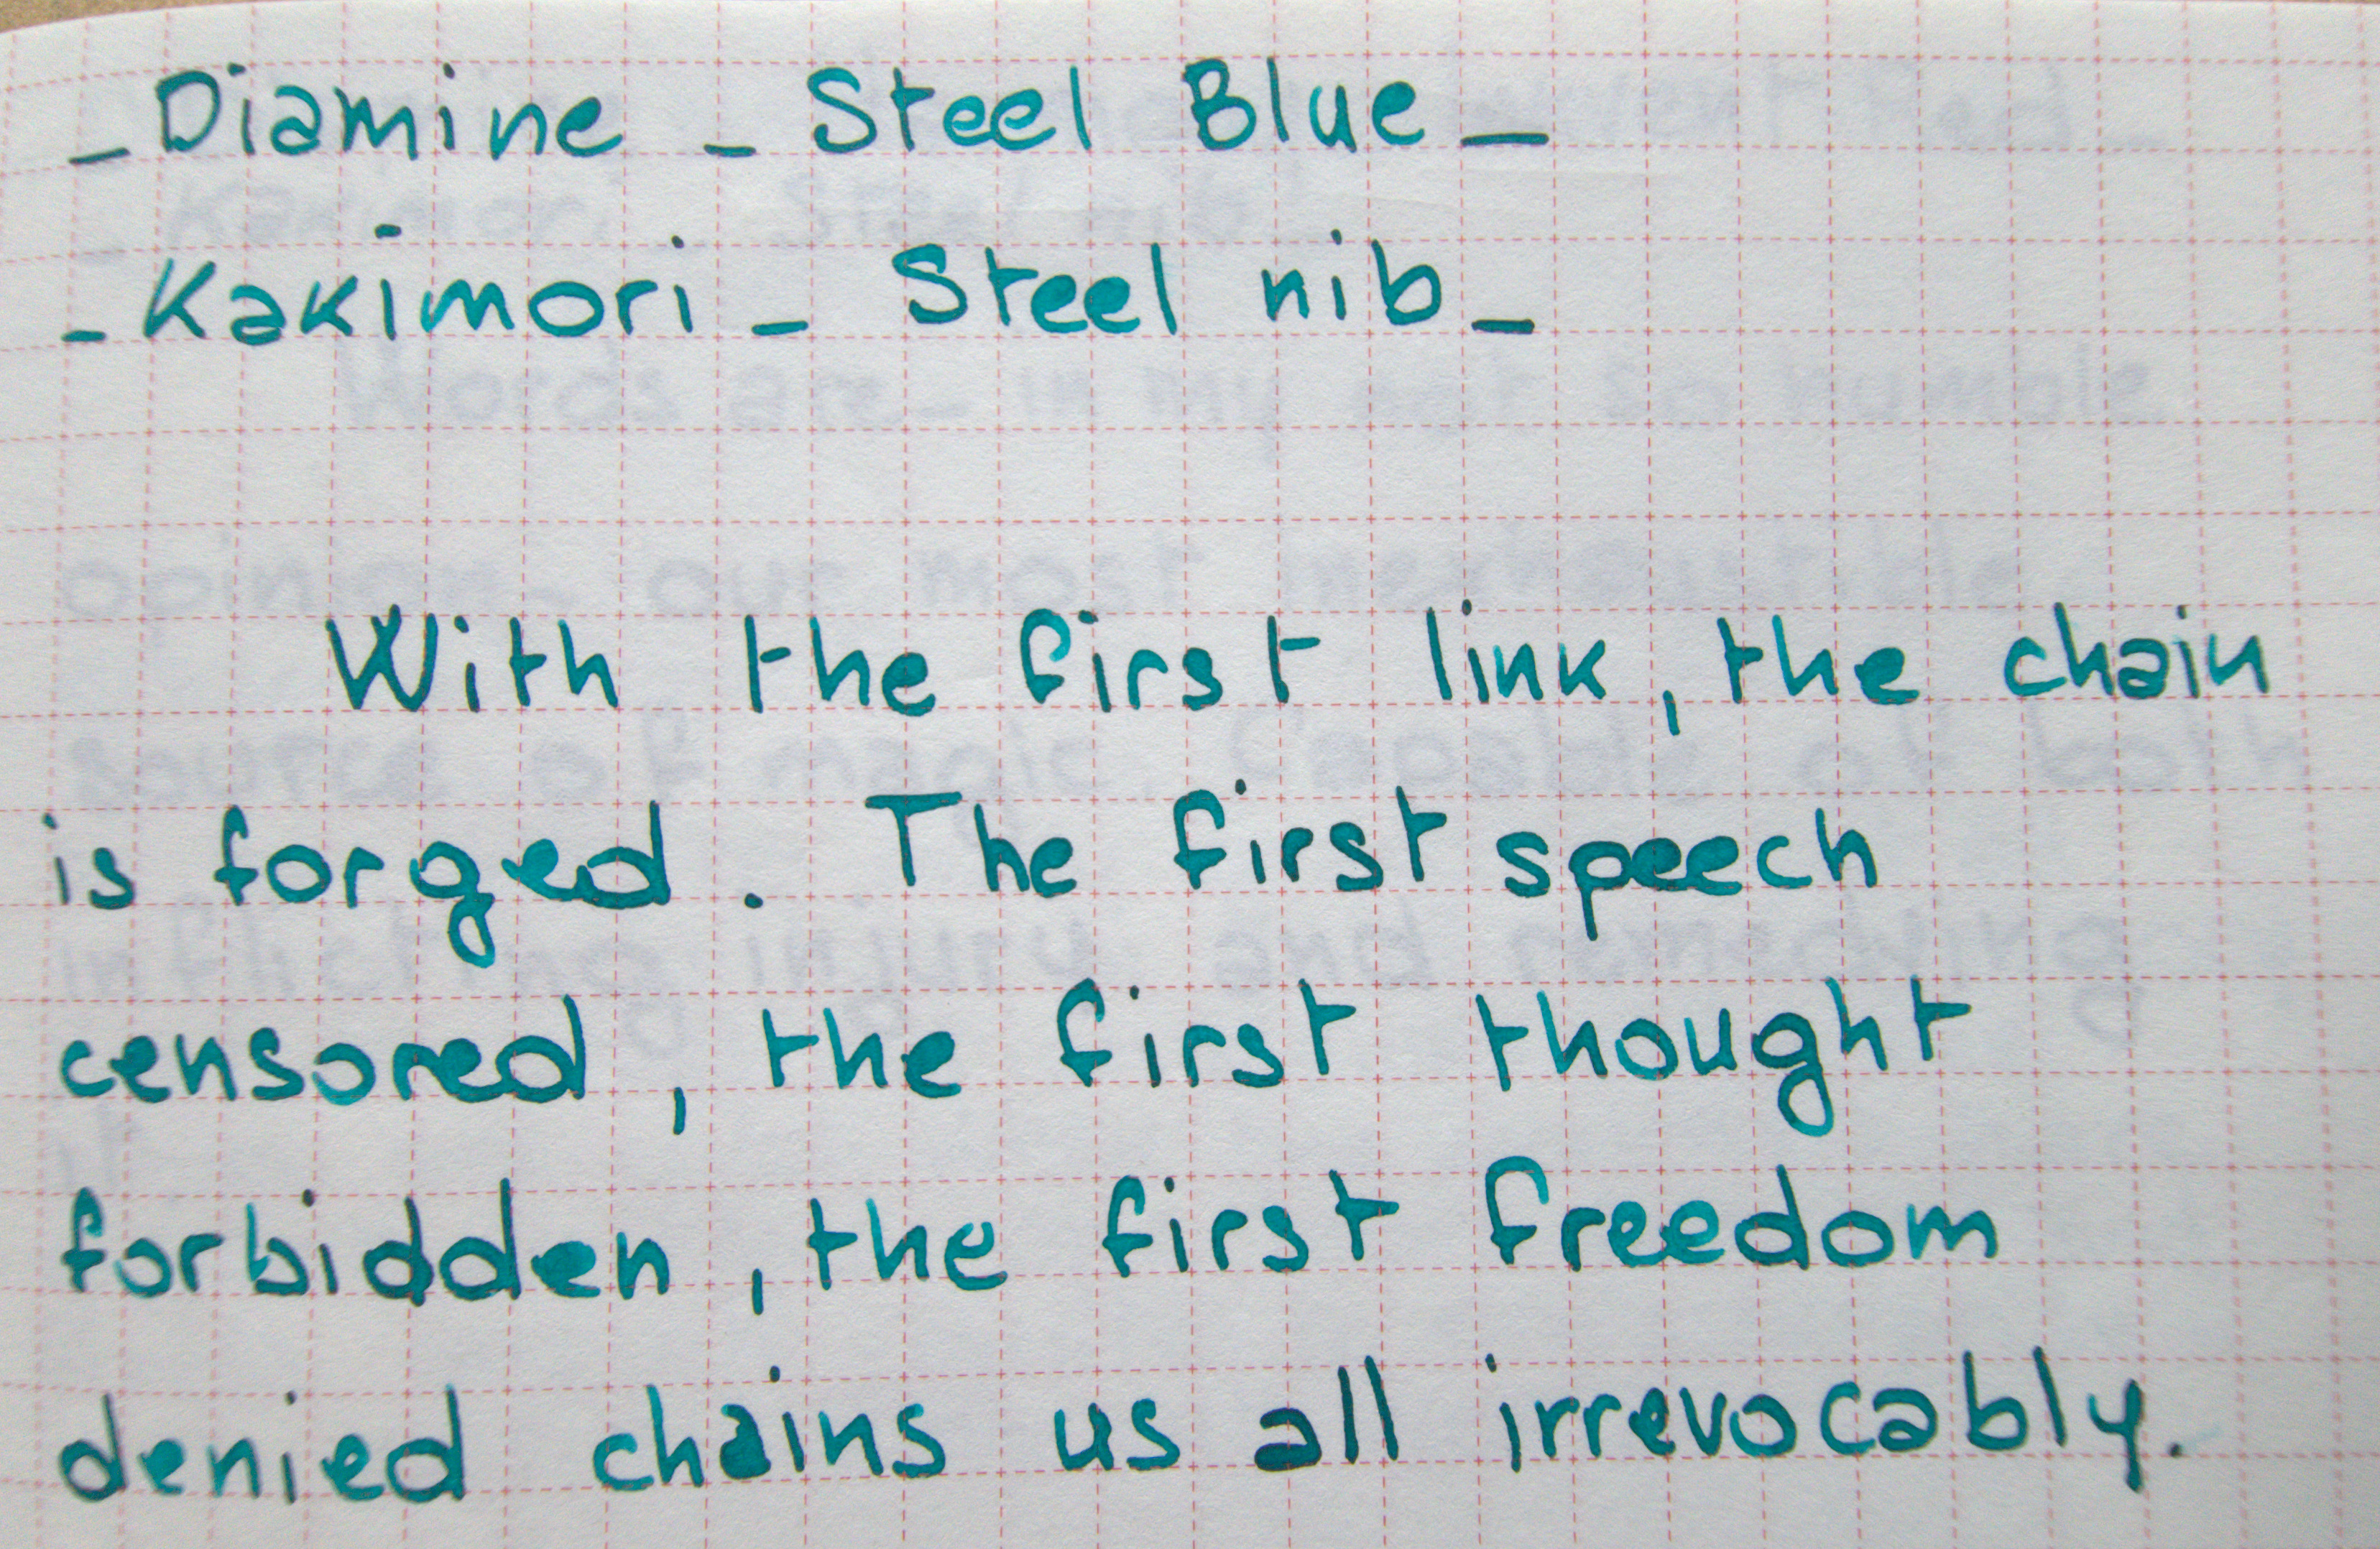 _ Diamine _ Steel Blue _
_ Kakimori _ Steel nib _
With the first link, the chain
is forged. The first speech
censored, the first thought
forbidden, the first freedom
denied chains us all irrevocably.